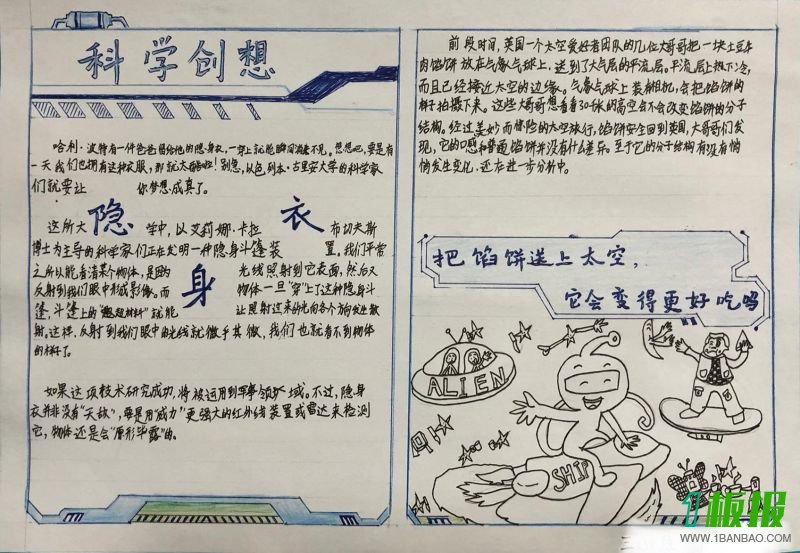 科学创想
哈利·波特有一件爸爸留给他的隐身衣,一穿上就能瞬间消失不见。想想吧,要是有
一天我们也拥有这种衣服,那就太酷啦!别急,以色列本·古里安大学的科学家
们就要让你梦想成真了。
隐身衣
这所大学中,以艾莉娜·卡拉布切夫斯
博士为主导的科学家们正在发明一种隐身斗篷装置。我们平常
之所以能看清某个物体,是因为光线照射到它表面,然后又
反射到我们眼中形成影像。而物体一旦"穿"上了这种隐身斗
篷,斗篷上的"超材料"就能让照射过来的光向各个方向发生散
射。这样,反射到我们眼中的光线就微乎其微,我们也就看不到物体
的样子了。
如果这项技术研究成功,将被运用到军事领域。不过,隐身
衣并非没有"天敌",要是用"威力"更强大的红外线装置或雷达来检测
它,物体还是会"原形毕露"的。
前段时间,英国一个太空爱好者团队的几位大哥哥把一块土豆牛
肉馅饼放在气象气球上,送到了大气层的平流层。平流层上热下冷,
而且已经接近太空的边缘。气象气球上装有相机,会把馅饼的
样子拍摄下来。这些大哥哥想看看30千米的高空会不会改变馅饼的分子
结构。经过美妙而惊险的太空旅行,馅饼安全回到英国,大哥哥们发
现,它的口感和普通馅饼并没有什么差异。至于它的分子结构有没有悄
悄发生变化,还在进一步分析中。
把馅饼送上太空,
它会变得更好吃吗
ALIEN
SHIP
1板报
WWW.1BANBAO.COM